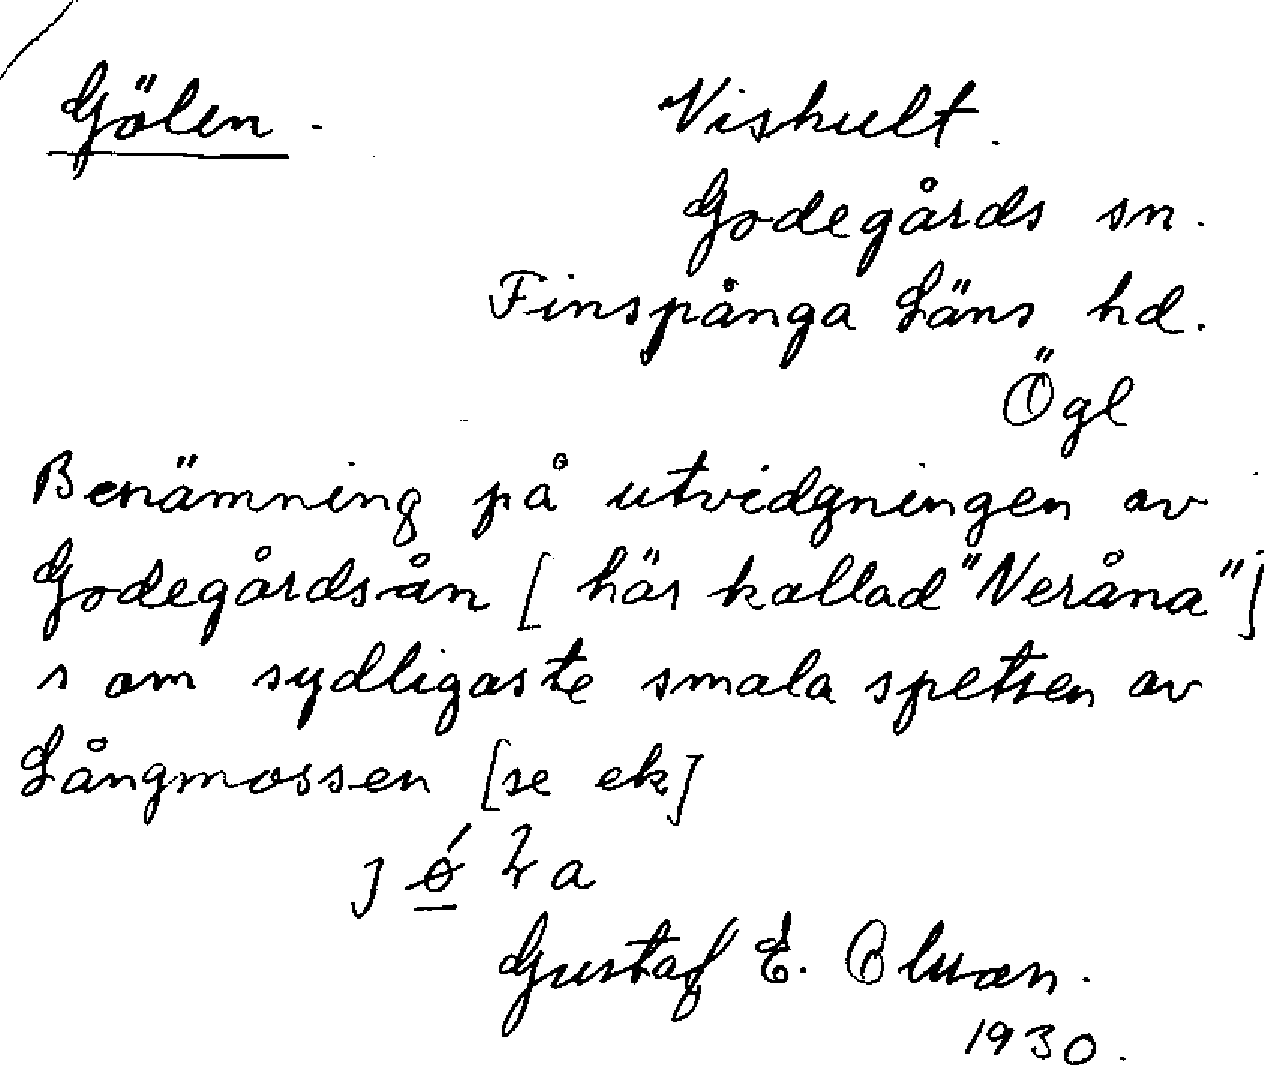 Gölen. Viskult.
Godegårds sn.
Finspånga Läns hd.
Ögl
Benämning på utvidgningen av
Godegårdsån [här kallad "Neråna"]
s om sydligaste smala spetsen av
Långmossen [se ek]
Gustaf E. Olsson.
1930.